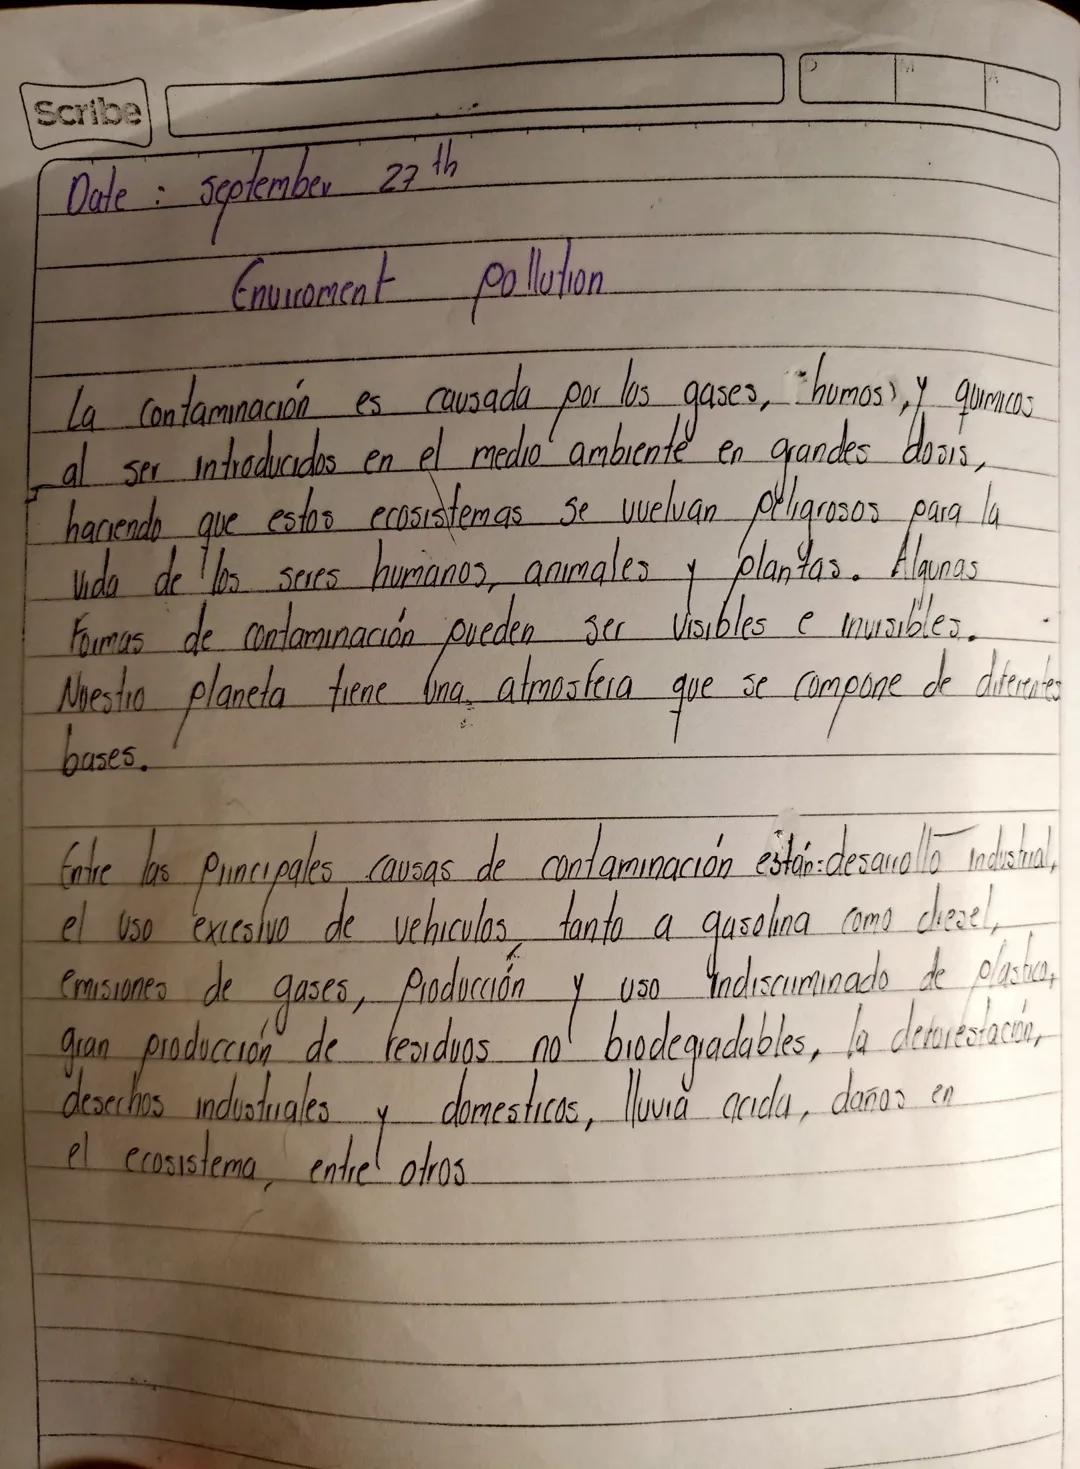 Scribe
D M A
Date : september 27th
Enviroment pollution
La contaminación es causada por los gases, humos, y quimicos
al ser introducidos en el medio ambiente en grandes dosis,
haciendo que estos ecosistemas se vuelvan peligrosos para la
vida de los seres humanos, animales y plantas. Algunas
Formas de contaminación pueden ser visibles e invisibles.
Nuestro planeta tiene una atmosfera que se compone de diferentes
bases.
Entre las principales causas de contaminación están: desarrollo industrial,
el uso excesivo de vehiculos, tanto a gasolina como diesel,
emisiones de gases, Producción y uso indiscriminado de plastico,
gran producción de residuos no biodegradables, la deforestación,
desechos industriales y domesticos, lluvia acida, daños en
el ecosistema, entre otros